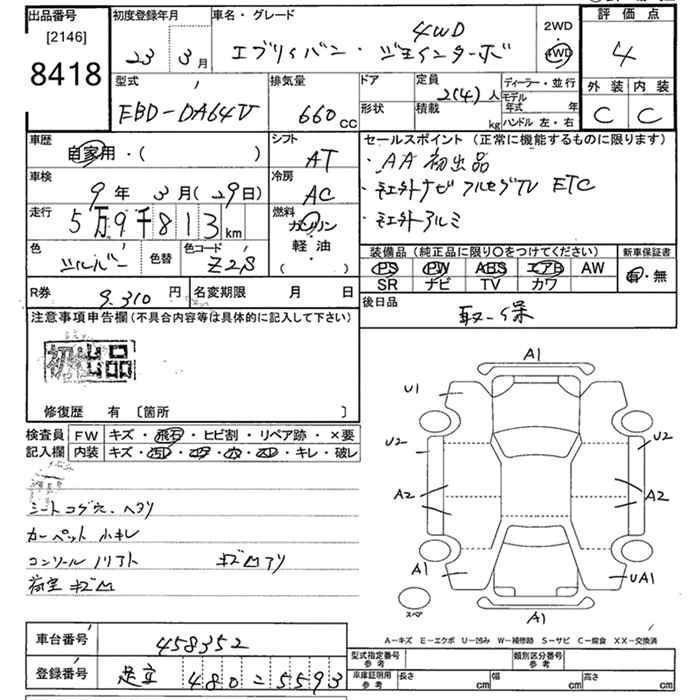 出品番号
[2146]
8418
初度登録年月
23 3月
車名・グレード
4WD
エブリィバン・ジョインターボ
2WD
4WD
評価点
4
外装 内装
C C
型式
EBD-DA64V
排気量
660 cc
ドア
形状
定員
2(4)人
積載
kg
ディーラー・並行
モデル年式 年
ハンドル 左・右
車歴
自家用・( )
シフト
AT
車検
9年 3月(29日)
冷房
AC
走行
5万9千813km
燃料
ガソリン
軽油
( )
色
シルバー
色替
色コード
Z2S
セールスポイント(正常に機能するものに限ります)
・AA初出品
・社外ナビ フルセグTV ETC
・社外アルミ
装備品(純正品に限り〇をつけてください)
PS PW ABS エアB AW
SR ナビ TV カワ
新車保証書
有・無
R券
9,310円
名変期限 月 日
後日品
取・保
注意事項申告欄(不具合内容等は具体的に記入して下さい)
初出品
修復歴 有 [箇所 ]
検査員記入欄
FW キズ・飛石・ヒビ割・リペア跡・×要
内装 キズ・汚れ・コゲ・穴・スレ・キレ・破レ
シートコゲ穴・ヘタリ
カーペット小キレ
コンソールノリアト キズ凹アリ
荷室キズ凹
A1
U1
U2
U2
A2
A2
A1
UA1
A1
スペア
A-キズ E-エクボ U-凹み W-補修跡 S-サビ C-腐食 XX-交換済
車台番号
458352
登録番号
足立 480 - 5593
型式指定番号
参考
類別区分番号
参考
車庫証明用
参考
長さ cm
幅 cm
高さ cm